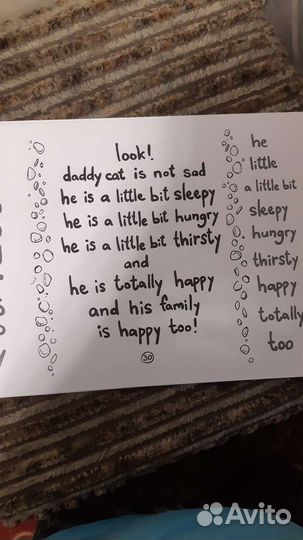 look!
daddy cat is not sad
he is a little bit sleepy
he is a little bit hungry
he is a little bit thirsty
and
he is totally happy
and his family
is happy too!
30
he
little
a little bit
sleepy
hungry
thirsty
happy
totally
too
Avito